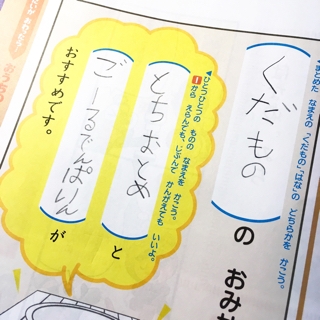 まとめた なまえの 「くだもの」「はな」の どちらかを かこう。
くだもの
の おみ
◀ひとつひとつの ものの なまえを かこう。
1から えらんでも、じぶんで かんがえても いいよ。
とちおとめ
と
ごーるでんぱいん
が
おすすめです。